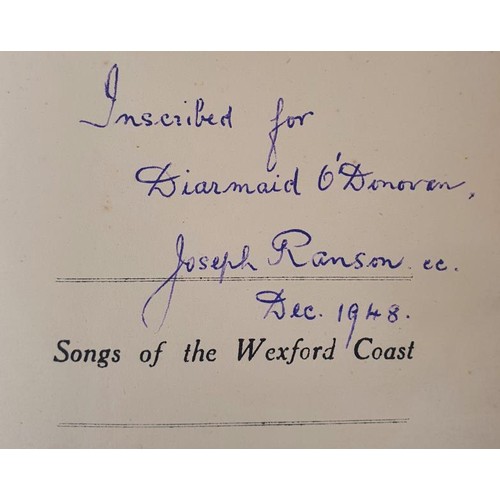 Inscribed for
Diarmaid O'Donovan,
Joseph Ranson cc.
Dec. 1948.
Songs of the Wexford Coast